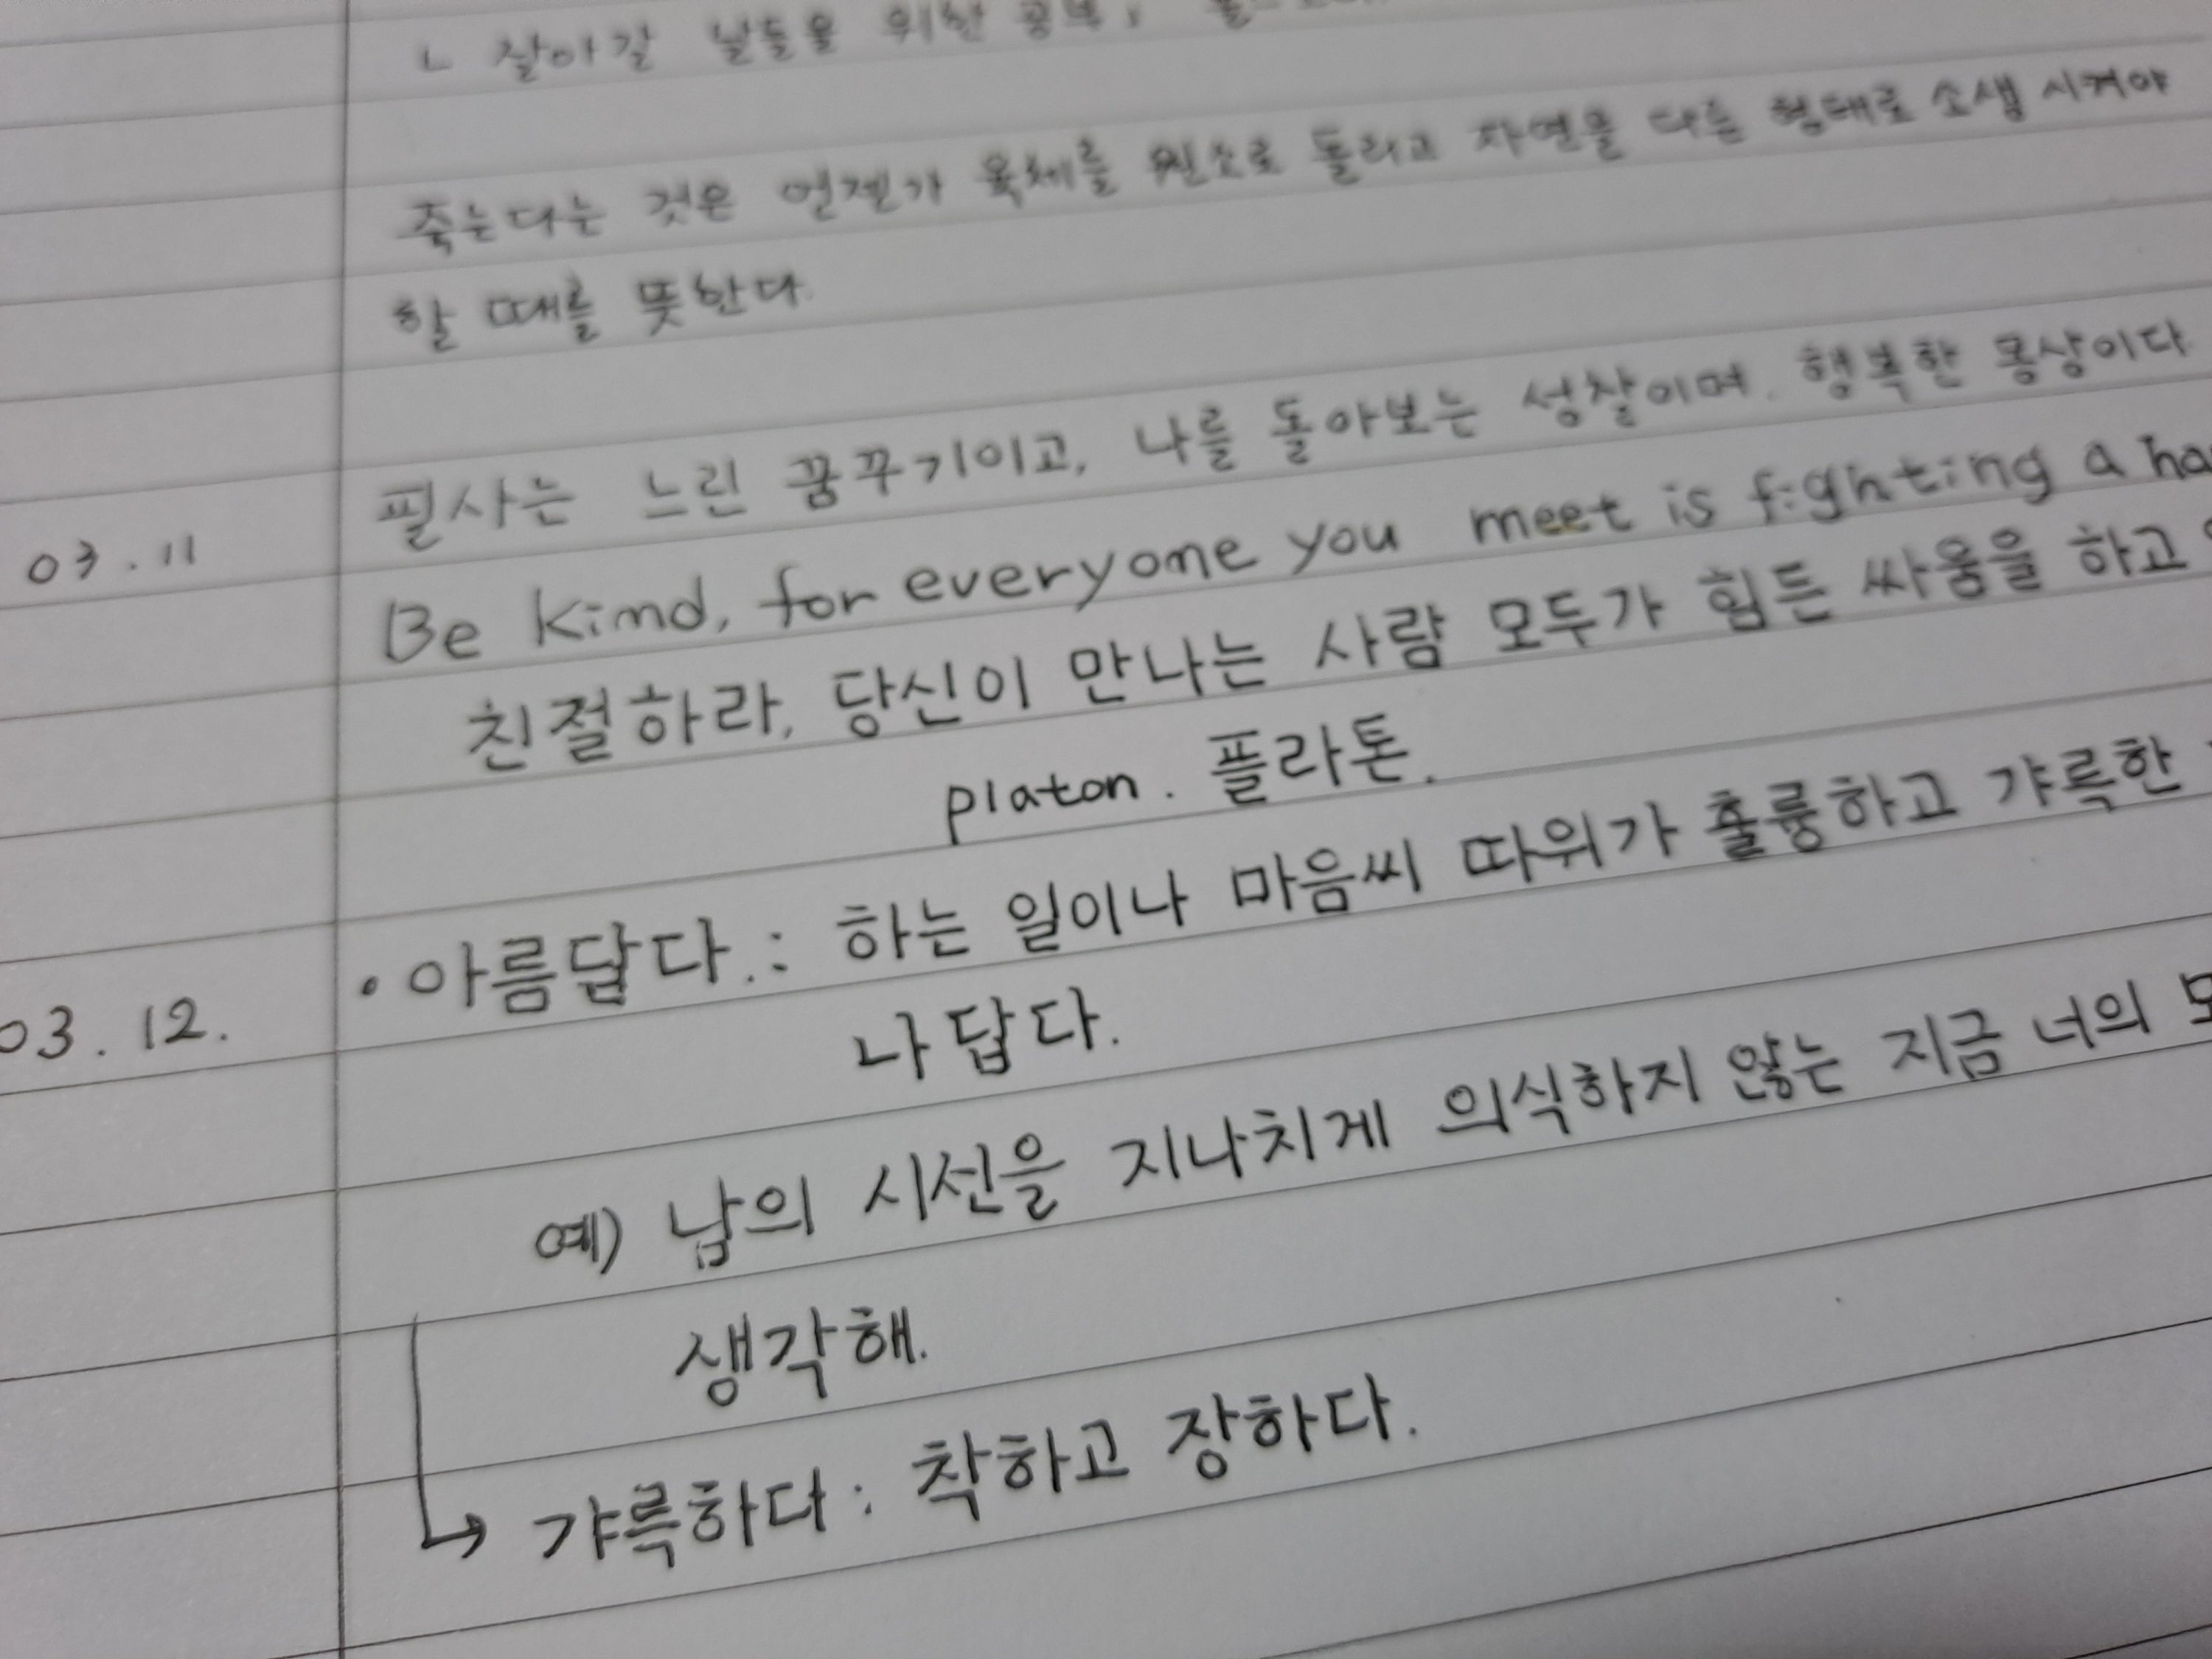 ㄴ 살아갈 날들을 위한 공부,
죽는다는 것은 언젠가 육체를 원소로 돌리고 자연을 다른 형태로 소생 시켜야
할 때를 뜻한다.
필사는 느린 꿈꾸기이고, 나를 돌아보는 성찰이며. 행복한 몽상이다
03.11 Be kind, for everyone you meet is fighting a
친절하라, 당신이 만나는 사람 모두가 힘든 싸움을 하고
platon. 플라톤.
03.12. • 아름답다.: 하는 일이나 마음씨 따위가 훌륭하고 갸륵한
나답다.
예) 남의 시선을 지나치게 의식하지 않는 지금 너의
생각해.
↳ 갸륵하다 : 착하고 장하다.